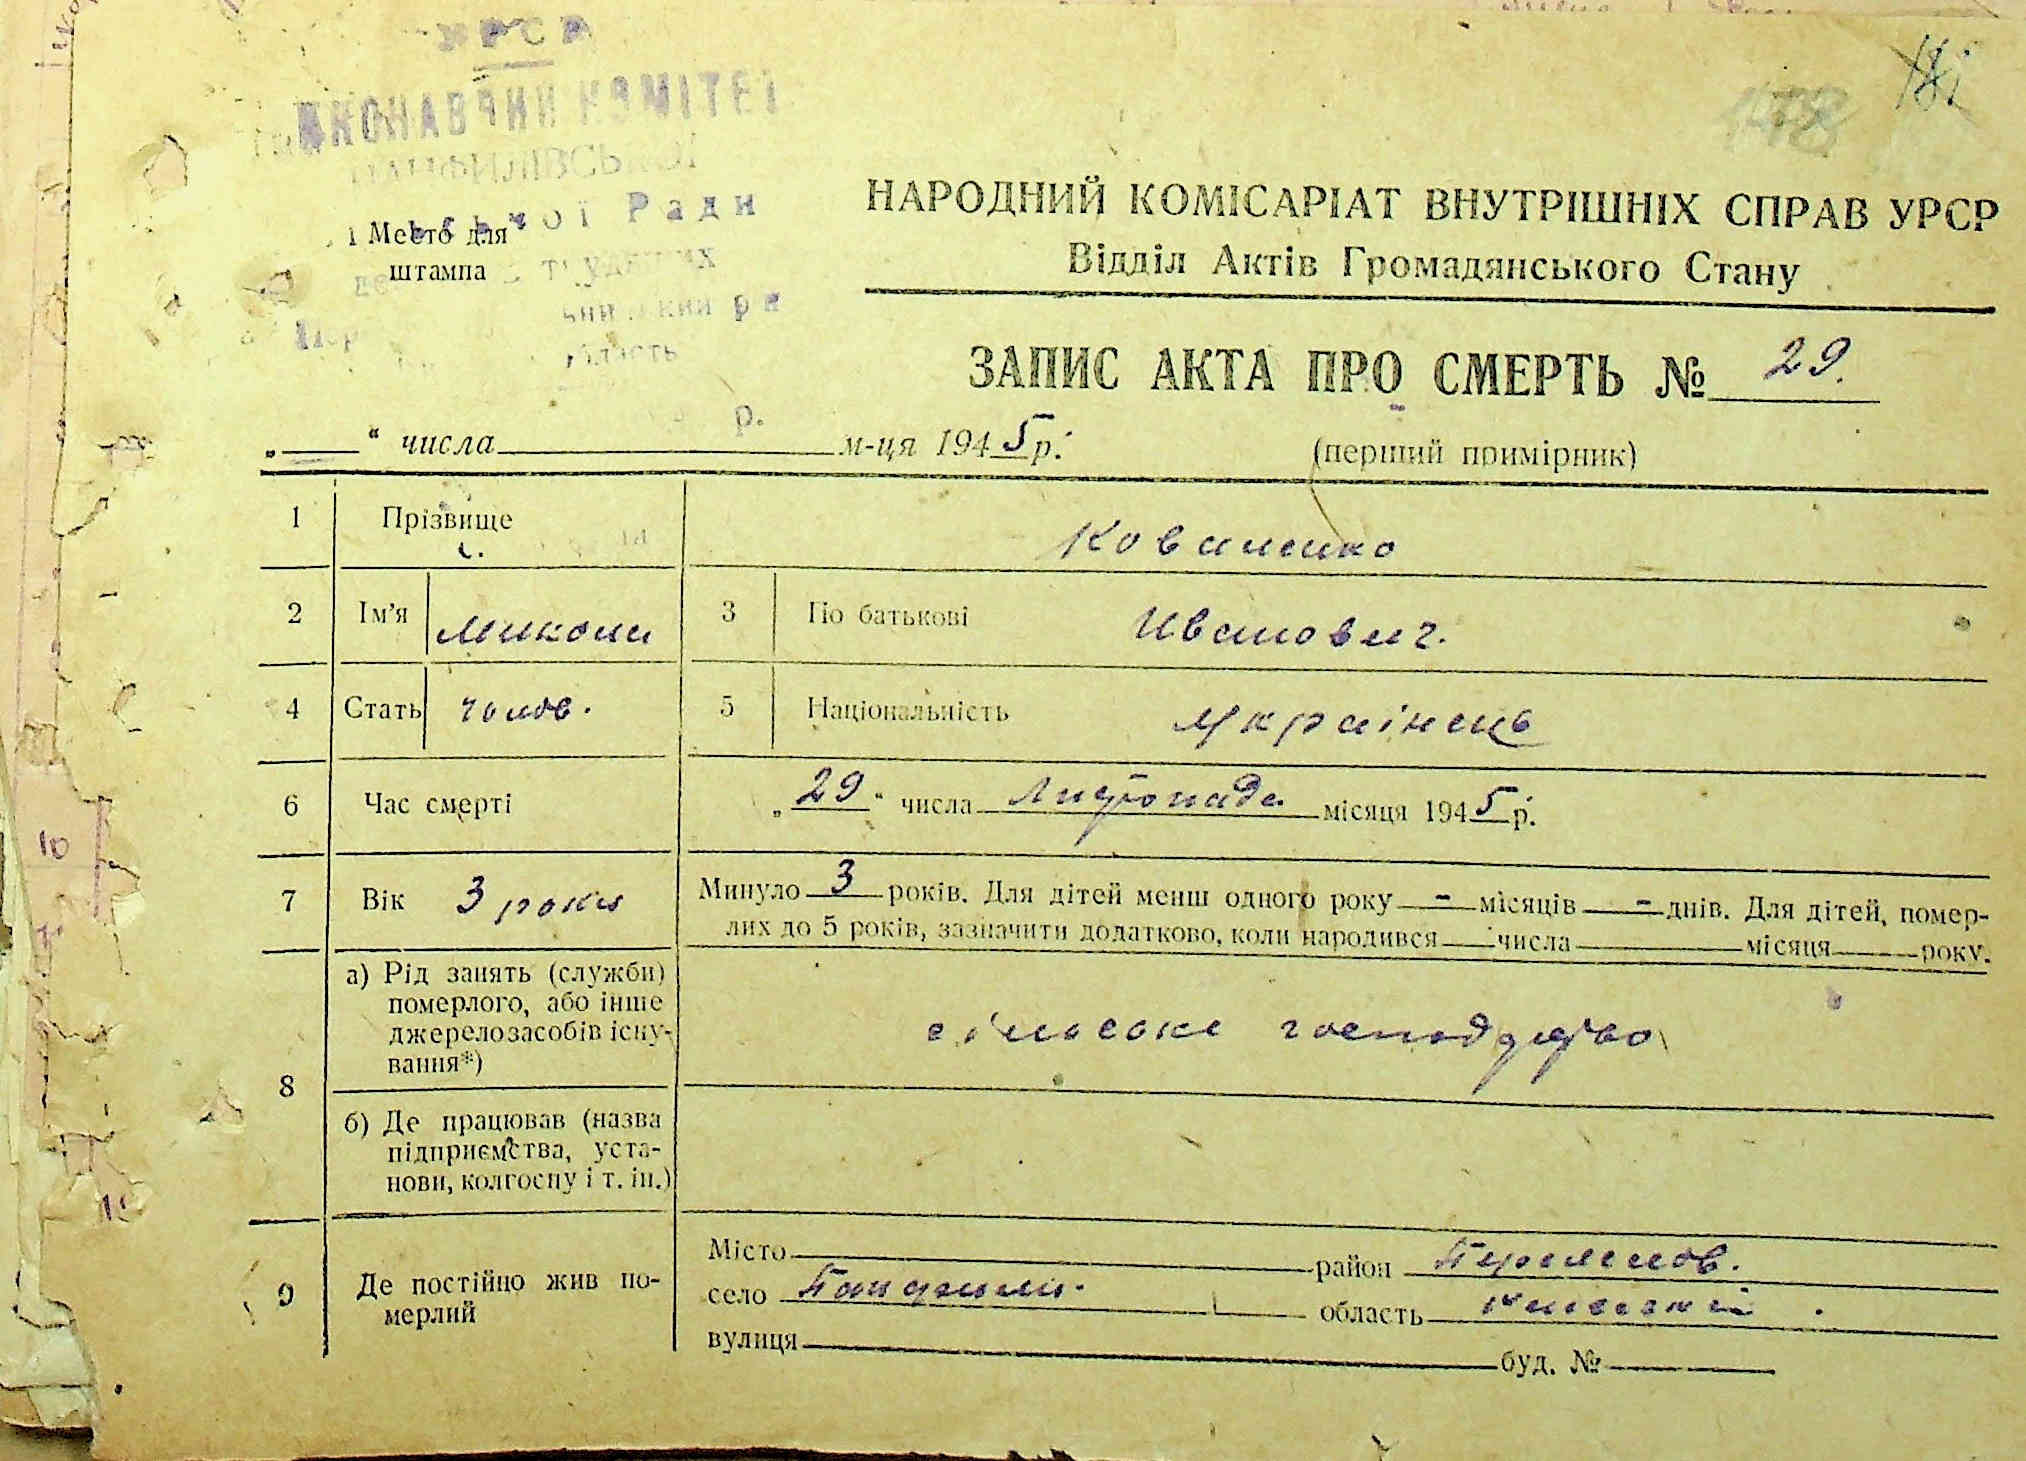 УРСР
ВИКОНАВЧИЙ КОМІТЕТ
ПАНФИЛІВСЬКОЇ
Ради
Место для
штампа
181
НАРОДНИЙ КОМІСАРІАТ ВНУТРІШНІХ СПРАВ УРСР
Відділ Актів Громадянського Стану
ЗАПИС АКТА ПРО СМЕРТЬ № 29.
„ “ числа м-ця 1945 р. (перший примірник)
1 Прізвище Коваленко
2 Ім'я Микола 3 По батькові Иванович.
4 Стать чолов. 5 Національність Українець
6 Час смерті „29“ числа Листопада місяця 1945 р.
7 Вік 3 роки Минуло 3 років. Для дітей менш одного року - місяців - днів. Для дітей, помер-
лих до 5 років, зазначити додатково, коли народився числа місяця року.
8 а) Рід занять (служби)
померлого, або інше
джерело засобів існу-
вання*)
сільське господарство
б) Де працював (назва
підприємства, уста-
нови, колгоспу і т. ін.)
9 Де постійно жив по-
мерлий
Місто район
село Панфили. область Київській
вулиця буд. №